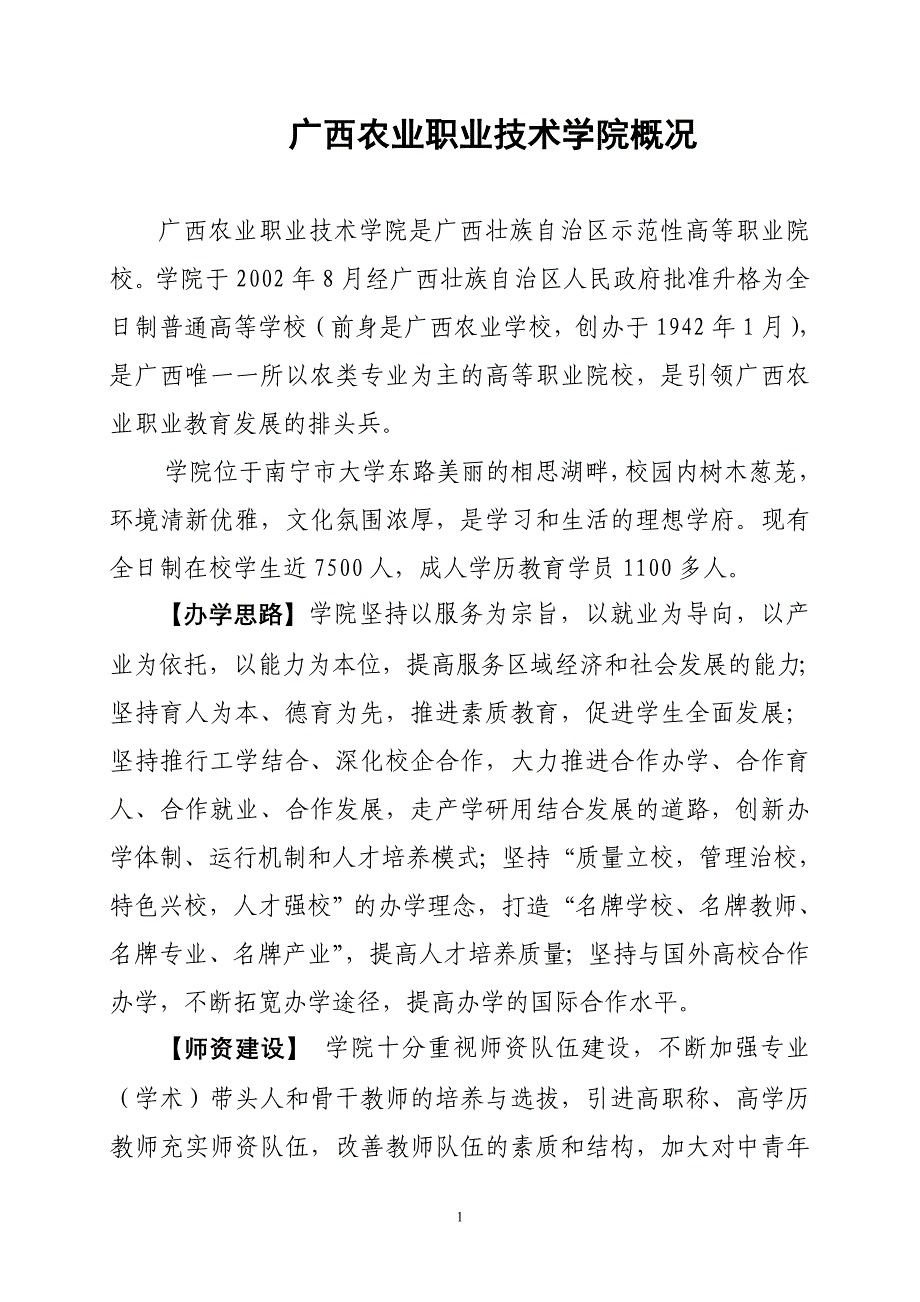 广西农业职业技术学院概况
广西农业职业技术学院是广西壮族自治区示范性高等职业院
校。学院于 2002 年 8 月经广西壮族自治区人民政府批准升格为全
日制普通高等学校（前身是广西农业学校，创办于 1942 年 1 月），
是广西唯一一所以农类专业为主的高等职业院校，是引领广西农
业职业教育发展的排头兵。
学院位于南宁市大学东路美丽的相思湖畔，校园内树木葱茏，
环境清新优雅，文化氛围浓厚，是学习和生活的理想学府。现有
全日制在校学生近 7500 人，成人学历教育学员 1100 多人。
【办学思路】学院坚持以服务为宗旨，以就业为导向，以产
业为依托，以能力为本位，提高服务区域经济和社会发展的能力；
坚持育人为本、德育为先，推进素质教育，促进学生全面发展；
坚持推行工学结合、深化校企合作，大力推进合作办学、合作育
人、合作就业、合作发展，走产学研用结合发展的道路，创新办
学体制、运行机制和人才培养模式；坚持“质量立校，管理治校，
特色兴校，人才强校”的办学理念，打造“名牌学校、名牌教师、
名牌专业、名牌产业”，提高人才培养质量；坚持与国外高校合作
办学，不断拓宽办学途径，提高办学的国际合作水平。
【师资建设】 学院十分重视师资队伍建设，不断加强专业
（学术）带头人和骨干教师的培养与选拔，引进高职称、高学历
教师充实师资队伍，改善教师队伍的素质和结构，加大对中青年
1